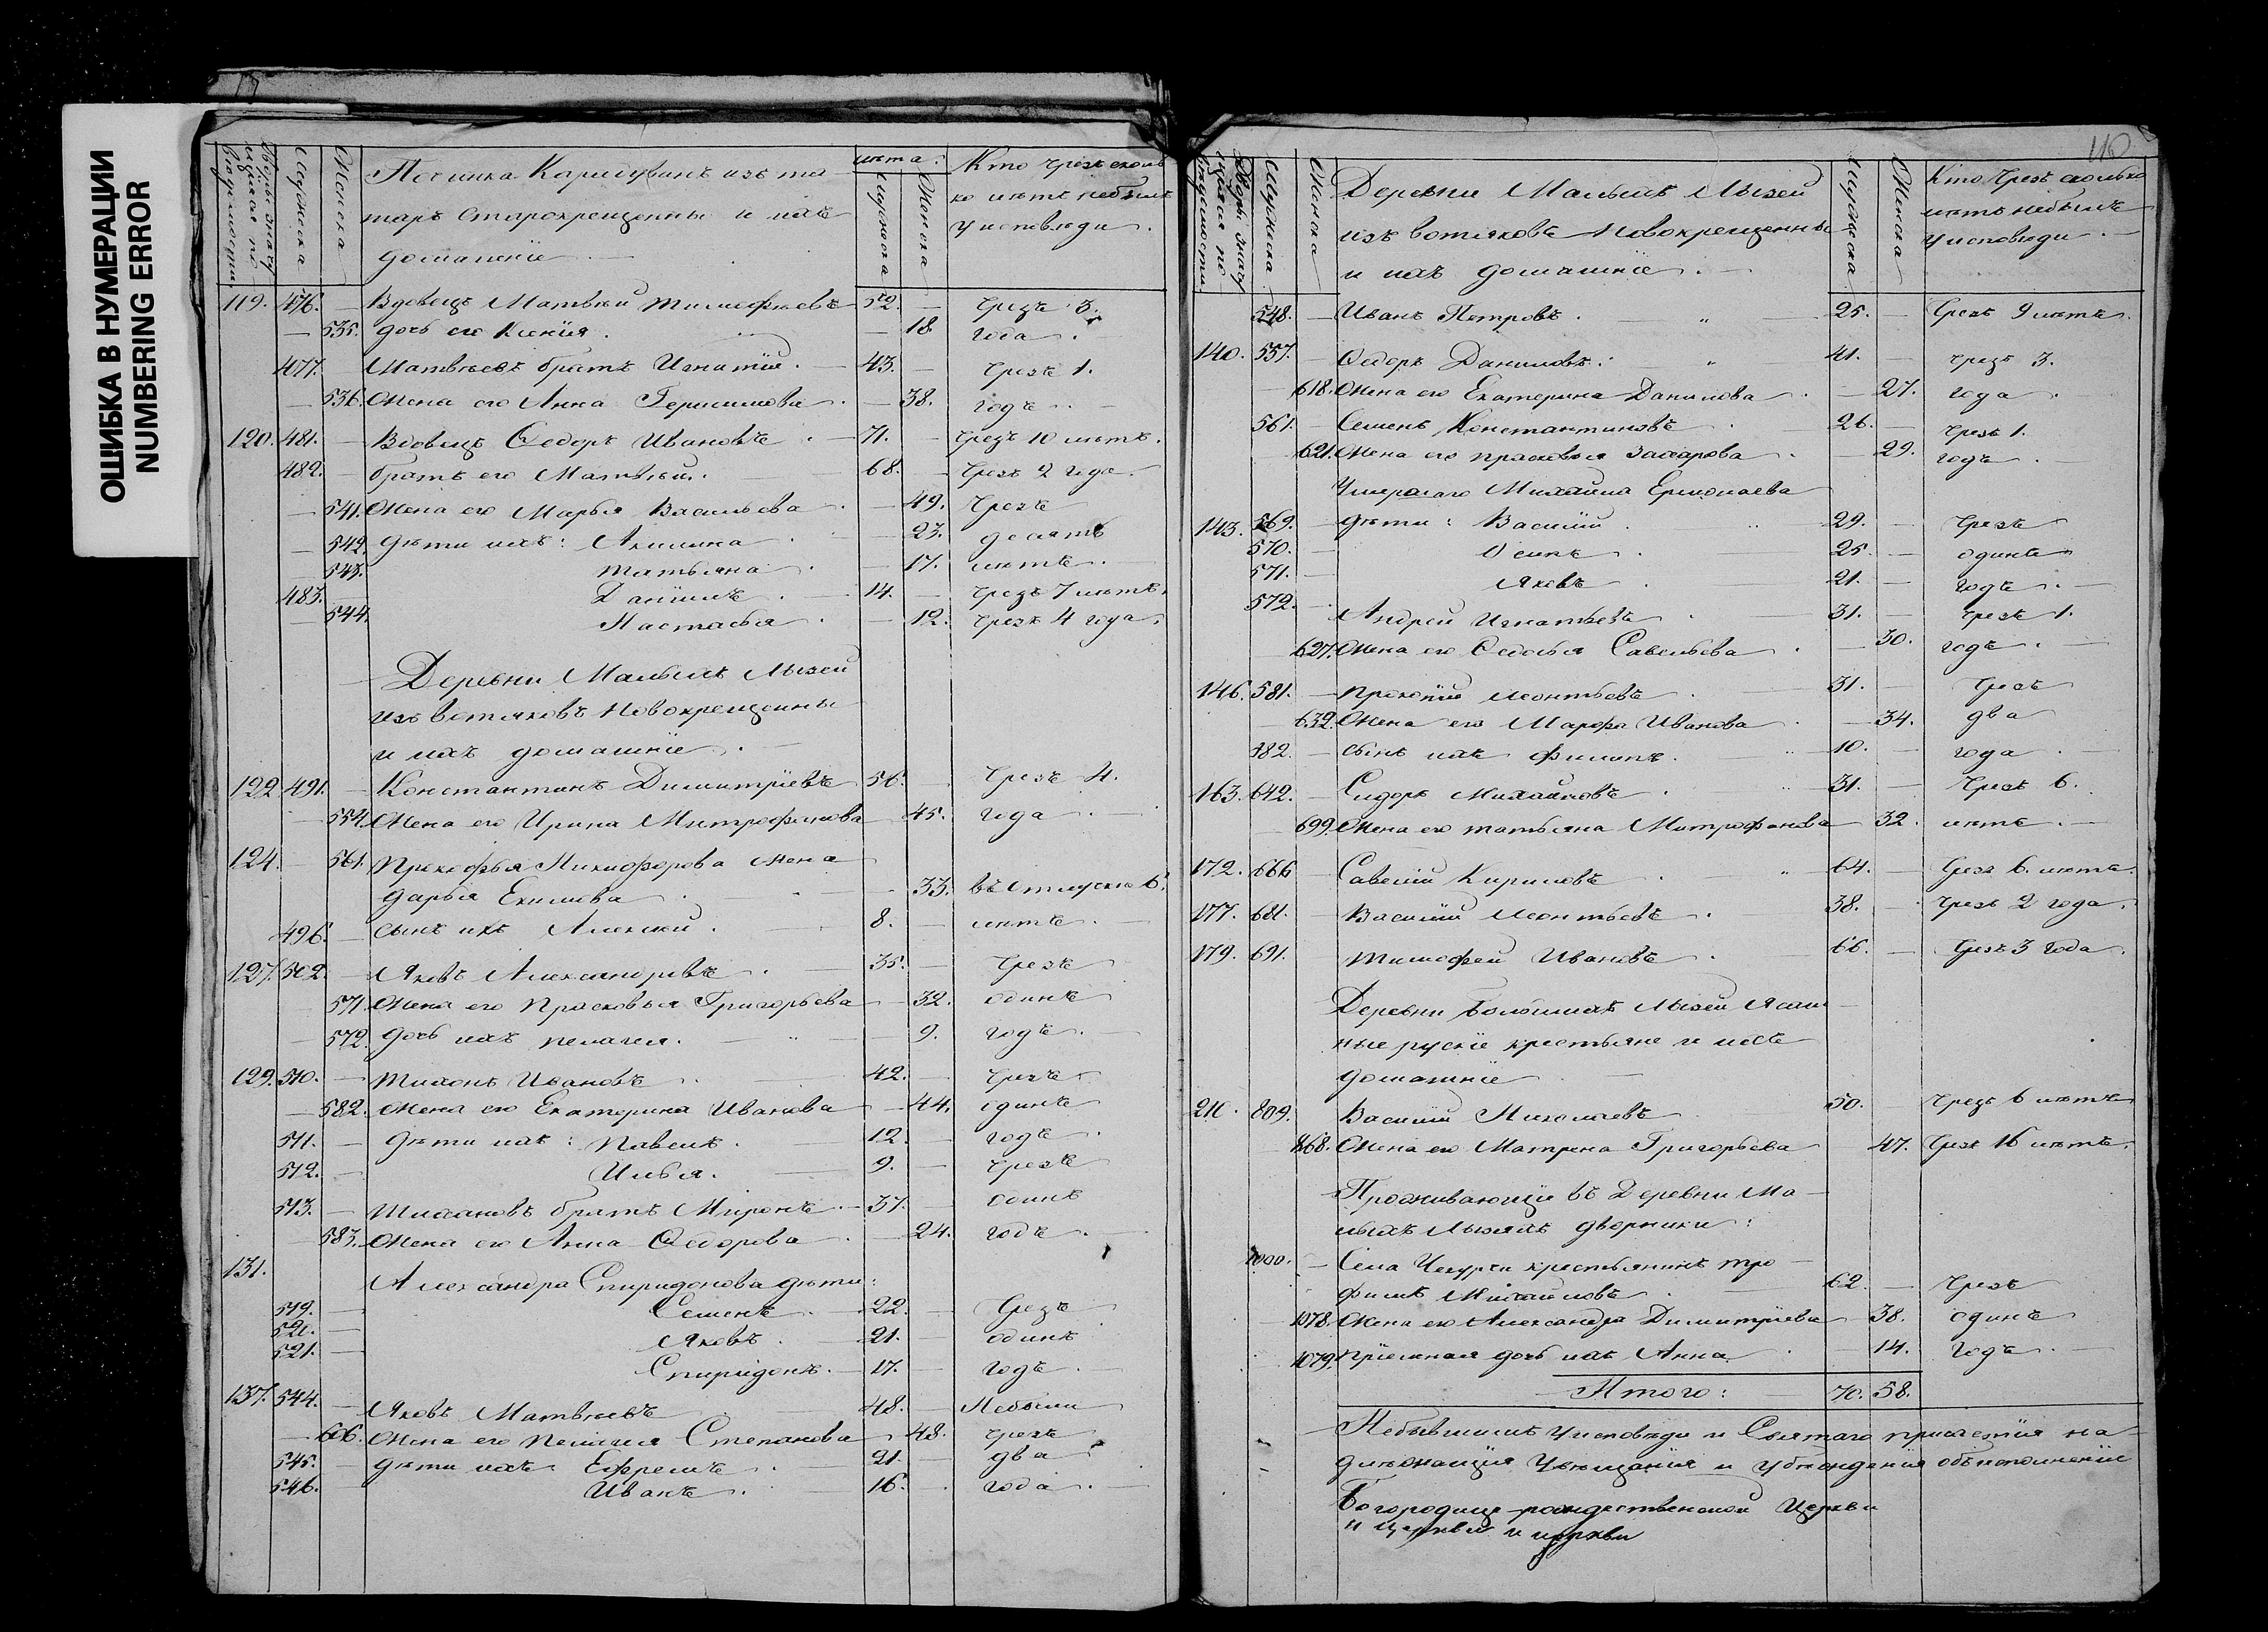 ОШИБКА В НУМЕРАЦИИ
NUMBERING ERROR
Дворы значущiеся по вѣдомости
Мужеска
Женска
Починка Каридуванъ изъ та
таръ старокрещенны и ихъ
домашнiе
лѣта
Мужеска
Женска
Кто чрезъ сколь
ко лѣтъ небылъ
у исповѣди.
119. 476. — Вдовецъ Матвѣй Тимофѣевъ 52. — Чрезъ 3.
— 535. дочь его Ксенiя. — 18 года.
477. Матвѣевъ братъ Игнатiй. 43. — Чрезъ 1.
— 536. Жена его Анна Герасимова. — 38. годъ.
120. 481. — Вдовецъ Ѳедоръ Ивановъ 71. — Чрезъ 10 лѣтъ.
482. — братъ его Матвѣй. 68. — Чрезъ 2 года.
— 541. Жена его Марья Васильева — 49. Чрезъ
— 542. дѣти ихъ: Акилина — 23. десять
543. Татьяна — 17. лѣтъ.
483. Данiилъ. 14. — Чрезъ 7 лѣтъ.
— 544. Настасья — 12. Чрезъ 4 года.
Деревни Малыхъ Лызей
изъ вотяковъ новокрещенны
и ихъ домашнiе.
122. 491. — Константинъ Димитрiевъ 56. — Чрезъ 4.
— 554. Жена его Ирина Митрофанова — 45. года.
124. — 561. Прокофья Никифорова жена
Дарья Екимова — 33. въ отлускъ 6.
496. — сынъ ихъ Алексѣй. 8. — лѣтъ.
127. 502. — Яковъ Александровъ 35. — Чрезъ
571. Жена его Прасковья Григорьева — 32. одинъ
— 572. дочь ихъ Пелагея. — 9. годъ.
129. 510. — Тихонъ Ивановъ 42. — Чрезъ
— 582. Жена его Екатерина Иванова — 44. одинъ
511. — дѣти ихъ: Павелъ. 12. — годъ.
512. — Илья. 9. — Чрезъ
513. — Тихановъ братъ Миронъ. 37. — одинъ
583. Жена его Анна Ѳедорова — 24. годъ.
131. Александра Спиридонова дѣти:
519. — Семенъ. 22. — Чрезъ
520. — Яковъ. 21. — одинъ
521. — Спиридонъ. 17. — годъ.
137. 544. — Яковъ Матвѣевъ 48. — Небыли
— 606. Жена его Пелагея Степанова — 48. Чрезъ
545. — дѣти ихъ: Ефремъ 21. — два
546. Иванъ. 16. — года.
110
Дворы значущiеся по вѣдомости
Мужеска
Женска
Деревни Малыхъ Лызей
изъ вотяковъ новокрещенны
и ихъ домашнiе.
Мужеска
Женска
Кто чрезъ сколько
лѣтъ небылъ
у исповѣди.
548. — Иванъ Петровъ. 25. — Чрезъ 9 лѣтъ.
140. 557. — Ѳедоръ Даниловъ. 41. — Чрезъ 3.
— 618. Жена его Екатерина Данилова — 27. года.
561. — Семенъ Константиновъ 26. — Чрезъ 1.
— 621. Жена его Прасковья Захарова — 29. годъ.
Умершаго Михаила Ермолаева
143. 569. — дѣти: Василiй. 29. — Чрезъ
570. — Осипъ 25. — одинъ
571. — Яковъ 21. — годъ.
572. — Андрей Игнатьевъ 31. — Чрезъ 1.
627. Жена его Ѳедосья Савельева — 30. годъ.
146. 581. — Прокопiй Леонтьевъ 31. — Чрезъ
— 632. Жена его Марфа Иванова — 34. два
582. — сынъ ихъ Филипъ. 10. — года
163. 642. — Сидоръ Михайловъ 31. — Чрезъ 6.
699. Жена его Татьяна Митрофанова — 32. лѣтъ.
172. 666 — Савелiй Кириловъ 64. — Чрезъ 6. лѣтъ.
177. 681. — Василiй Леонтьевъ 38. — Чрезъ 2 года.
179. 691. Тимофей Ивановъ 66. — Чрезъ 3 года.
Деревни Большихъ Лызей ясаш
ные рускiе крестьяне и ихъ
домашнiе
210. 809. Василiй Николаевъ 50. Чрезъ 6 лѣтъ
868. Жена его Матрена Григорьева 47. Чрезъ 16 лѣтъ.
Проживающiе въ Деревни Ма
лыхъ Лызяхъ дворники:
1000. — Села Чекурчи крестьянинъ Тро
фимъ Михаиловъ 62. — Чрезъ
1078. Жена его Александра Димитрiева — 38. одинъ
1079. Прiемная дочь ихъ Анна — 14. годъ.
Итого: 70. 58.
Небывшимъ у исповѣди и Святаго причастiя на-
длежащiя увѣщанiя и убѣжденiя объ исполненiи
Богородице-рождественской Церкви
и церкви и церкви